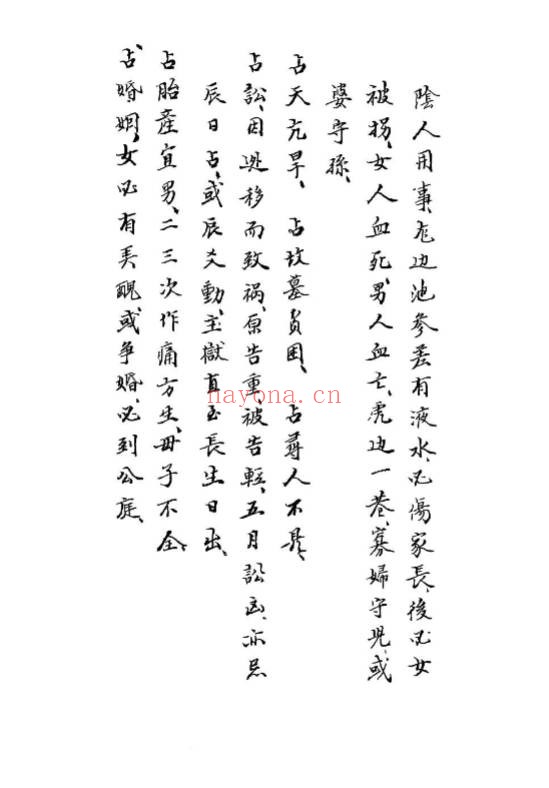 陰人用事、龙边池參差有液水、必傷家長、後必女
被拐、女人血死、男人血亡、虎边一巷、寡婦守児、或
婆守孫、
占天亢旱、　占坟墓貧困、　占尋人不見、
占訟、因迯移而致禍、原告重、被告輕、五月訟凶、亦忌
辰日占、或辰爻動、主獄直至長生日出、
占胎產宜男、二三次作痛方生、母子不全、
占婚姻、女必有美醜、或争婚、必到公庭、
nayona.cn